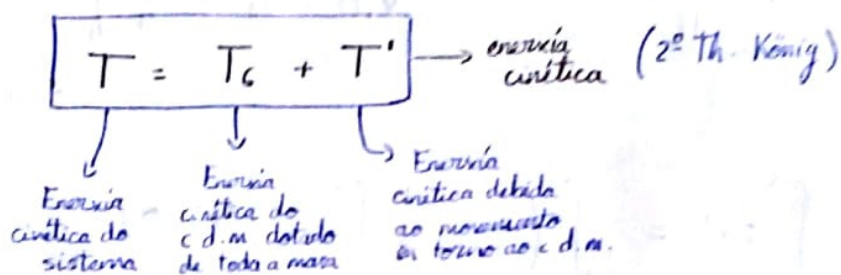 T = T_G + T' → enerxía cinética (2º Th. König)
Enerxía
cinética do
sistema
Enerxía
cinética do
c.d.m dotado
de toda a masa
Enerxía
cinética debida
ao movemento
en torno ao c.d.m.